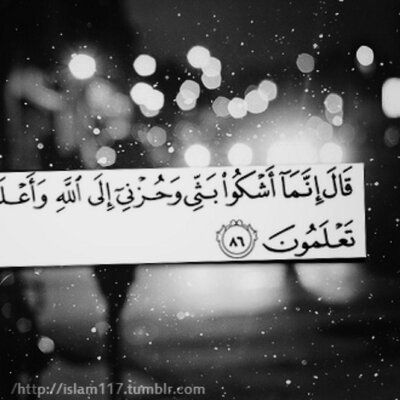 قَالَ إِنَّمَآ أَشْكُوا۟ بَثِّى وَحُزْنِىٓ إِلَى ٱللَّهِ
تَعْلَمُونَ ٨٦
/http://islam117.tumblr.com